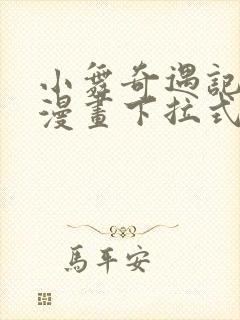 小舞奇遇記
漫畫下拉式
馬平安